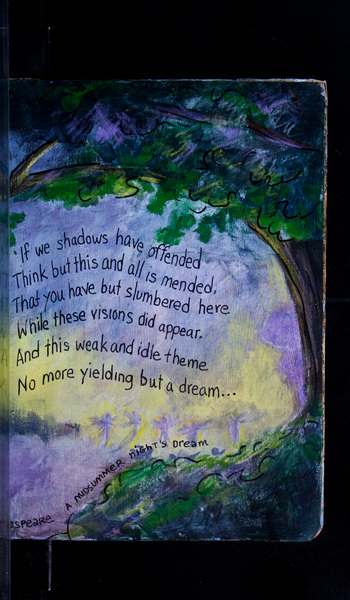 "If we shadows have offended
Think but this and all is mended,
That you have but slumbered here
While these visions did appear.
And this weak and idle theme
No more yielding but a dream...
A MIDSUMMER NIGHT'S DREAM
ESPEARE